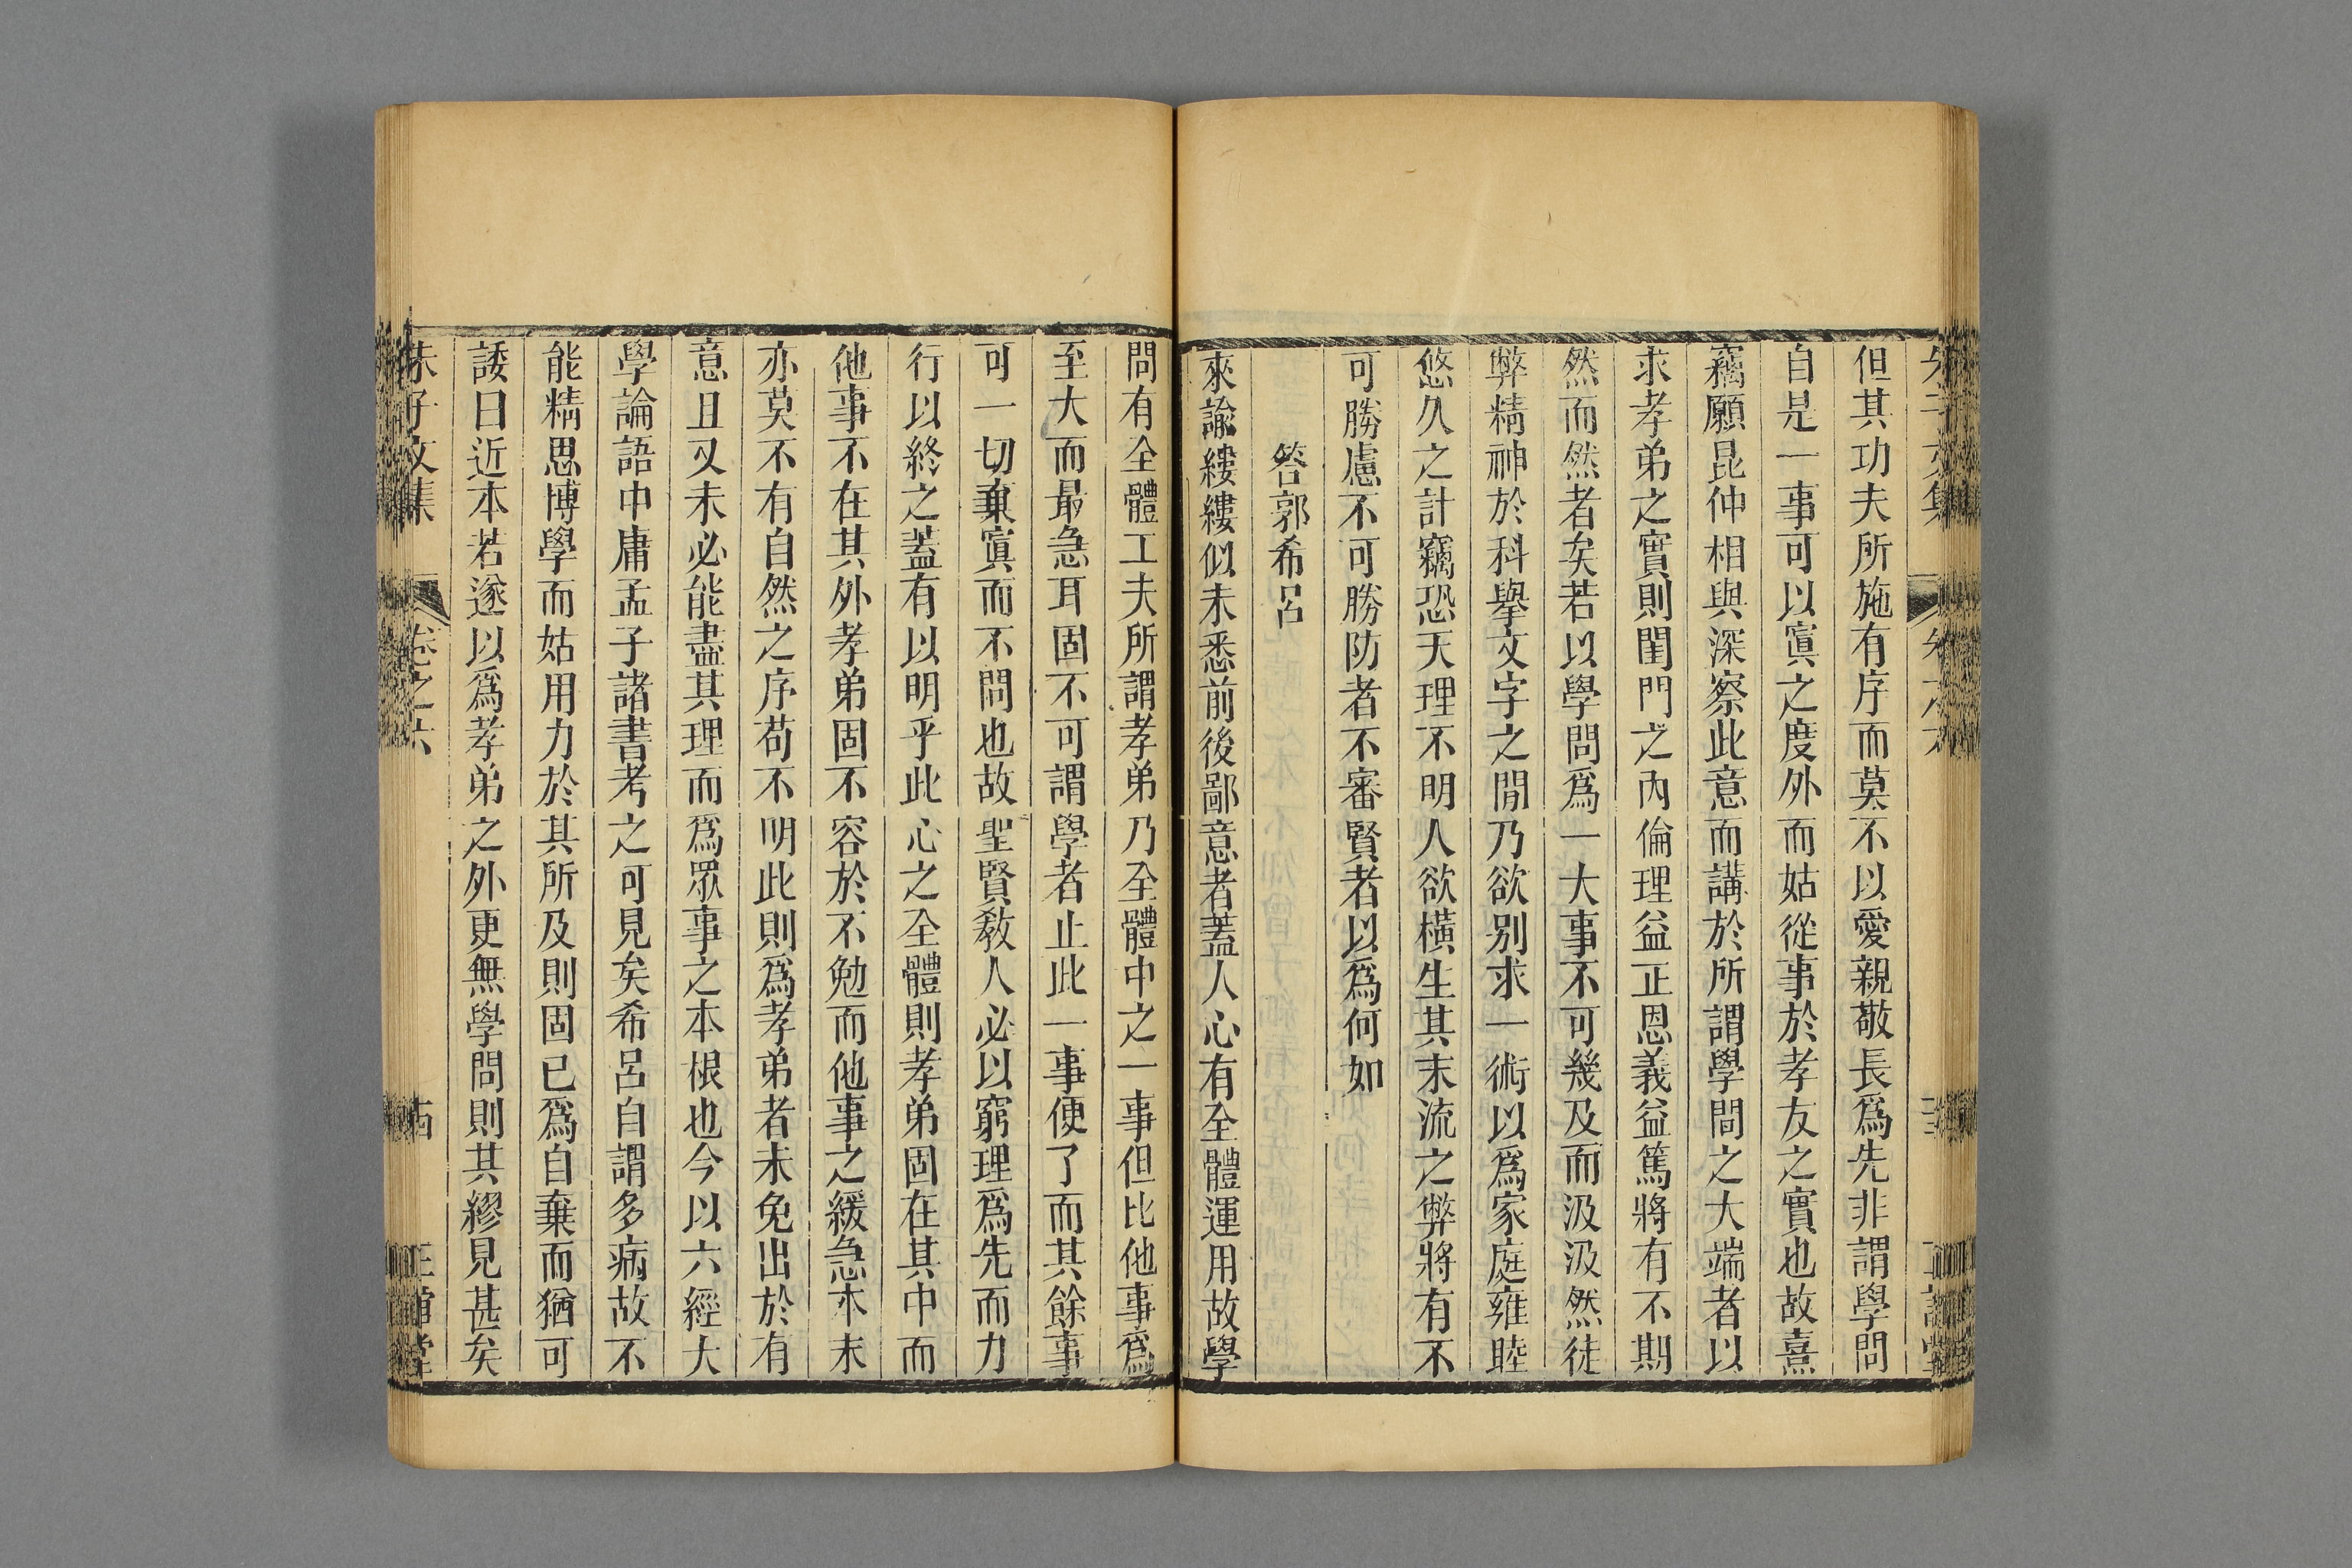 但其功夫所施有序而莫不以愛親敬長爲先非謂學問
自是一事可以寘之度外而姑從事於孝友之實也故熹
竊願昆仲相與深察此意而講於所謂學問之大端者以
求孝弟之實則閨門之內倫理益正恩義益篤將有不期
然而然者矣若以學問爲一大事不可幾及而汲汲然徒
弊精神於科擧文字之閒乃欲别求一術以爲家庭雍睦
悠久之計竊恐天理不明人欲橫生其末流之弊將有不
可勝慮不可勝防者不審賢者以爲何如
答郭希呂
來諭縷縷似未悉前後鄙意者蓋人心有全體運用故學
問有全體工夫所謂孝弟乃全體中之一事但比他事爲
至大而最急耳固不可謂學者止此一事便了而其餘事
可一切棄寘而不問也故聖賢敎人必以窮理爲先而力
行以終之蓋有以明乎此心之全體則孝弟固在其中而
他事不在其外孝弟固不容於不勉而他事之緩急本末
亦莫不有自然之序苟不明此則爲孝弟者未免出於有
意且又未必能盡其理而爲眾事之本根也今以六經大
學論語中庸孟子諸書考之可見矣希呂自謂多病故不
能精思博學而姑用力於其所及則固已爲自棄而猶可
諉曰近本若遂以爲孝弟之外更無學問則其繆見甚矣
朱子文集 卷之六